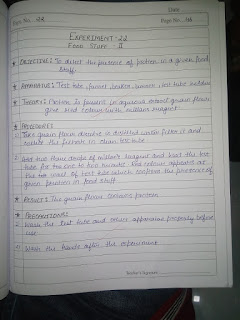 Date
Expt. No. 22
Page No. 46
EXPERIMENT: 22
FOOD STUFF - II
* OBJECTIVE: To ditect the presence of protein in a given food
stuff.
* APPARATUS: Test tube, funnel, beaker, burner, test tube holder
* THEORY: Protein is present in aqueous extract gram flour
give red colour with millon's reagent
* PROCEDURE:
Take gram flour dissolve in distilled water filter it and
collect the filtrate in clean test tube
Add two three drops of millon's reagent and heat the test
tube for to one to two minute. Red colour appeared at
the the wall of test tube which confirm the presence of
given protein in food stuff
* RESULT: The gram flour contains protein
* PRECAUTIONS:
Wash the test tube and other apparatus properly before
use
Wash the hands after the experiment
Teacher's Signature